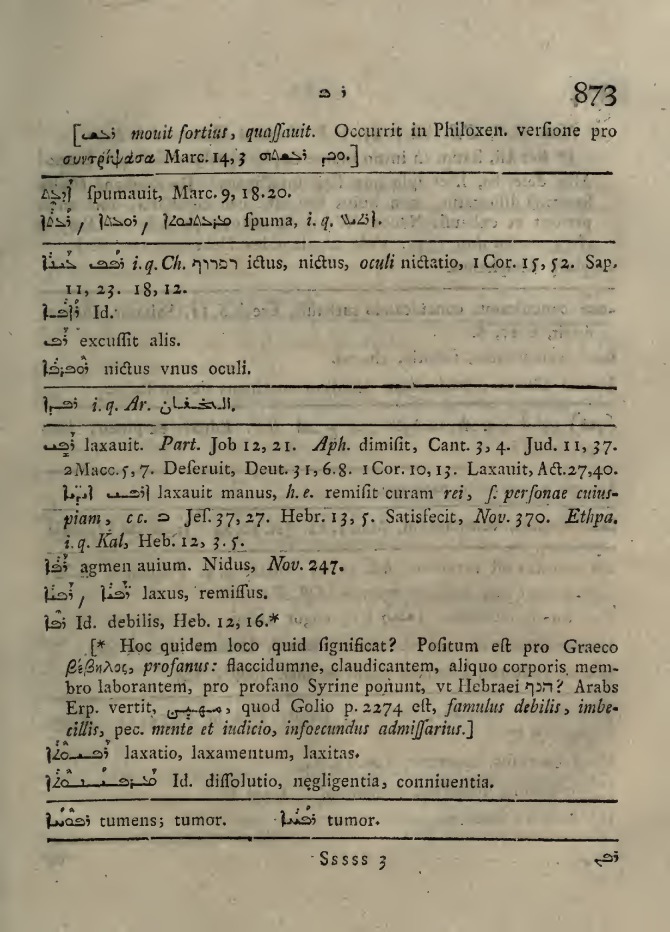 ܪ ܦ 873
[ܪܥܦ mouit fortius, quaſſauit. Occurrit in Philoxen. verſione pro
συντρίψασα Marc. 14, 3]
ſpumauit, Marc. 9, 18. 20.
ſpuma, i. q.
i. q. Ch. רפרוף ictus, nictus, oculi nictatio, 1 Cor. 15, 52. Sap.
11, 23. 18, 12.
Id.
ܪܦ excuſſit alis.
nictus vnus oculi.
i. q. Ar. الخفقان.
laxauit. Part. Job 12, 21. Aph. dimiſit, Cant. 3, 4. Jud. 11, 37.
2 Macc. 5, 7. Deſeruit, Deut. 31, 6. 8. 1 Cor. 10, 13. Laxauit, Act. 27, 40.
laxauit manus, h. e. remiſit curam rei, ſ. perſonae cuius-
piam, c c. ܒ Jeſ. 37, 27. Hebr. 13, 5. Satisfecit, Nov. 370. Ethpa.
i. q. Kal, Heb. 12, 3. 5.
ܪܦܐ agmen auium. Nidus, Nov. 247.
ܪܦܝܐ / laxus, remiſſus.
ܪܦܐ Id. debilis, Heb. 12, 16.*
[* Hoc quidem loco quid ſignificat? Poſitum eſt pro Graeco
βέβηλος, profanus: flaccidumne, claudicantem, aliquo corporis mem-
bro laborantem, pro profano Syrine ponunt, vt Hebraei חנף? Arabs
Erp. vertit, مهين, quod Golio p. 2274 eſt, famulus debilis, imbe-
cillis, pec. mente et iudicio, infoecundus admiſſarius.]
ܪܦܝܘܬܐ laxatio, laxamentum, laxitas.
ܡܪܦܝܢܘܬܐ Id. diſſolutio, negligentia, conniuentia.
tumens; tumor. tumor.
Sssss 3